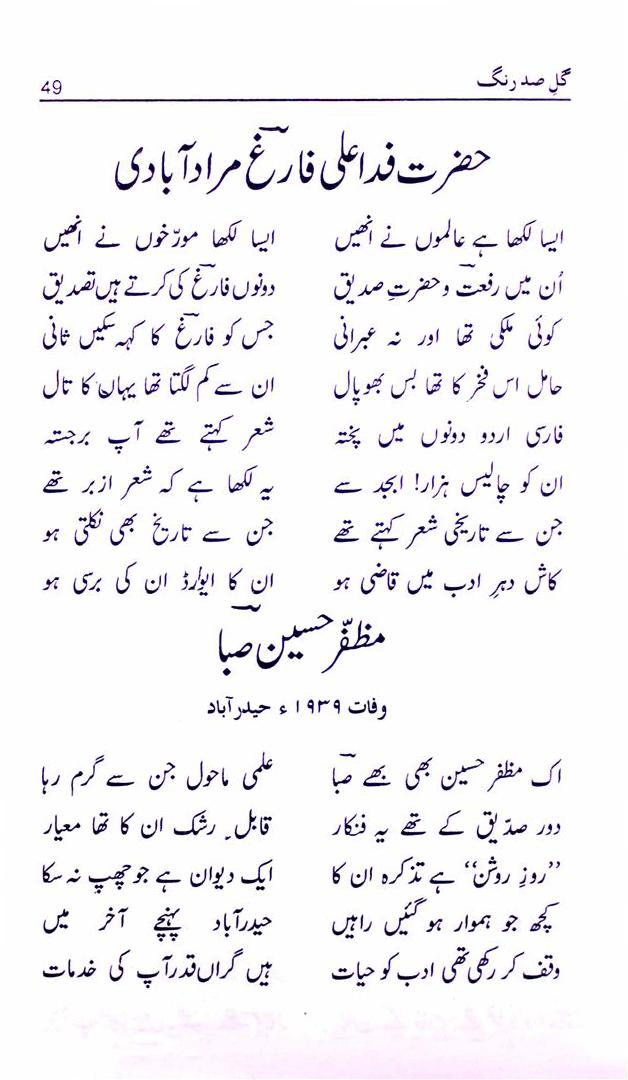 گلِ صد رنگ 49
حضرت فدا علی فارغؔ مراد آبادی
ایسا لکھا ہے عالموں نے انھیں ایسا لکھا مورّخوں نے انھیں
اُن میں رفعتؔ و حضرتِ صدیق دونوں فارغؔ کی کرتے ہیں تصدیق
کوئی ملکی تھا اور نہ عبرانی جس کو فارغؔ کا کہہ سکیں ثانی
حامل اس فخر کا تھا بس بھوپال ان سے کم لگتا تھا یہاں کا تال
فارسی اردو دونوں میں پختہ شعر کہتے تھے آپ برجستہ
ان کو چالیس ہزار! ابجد سے یہ لکھا ہے کہ شعر ازبر تھے
جن سے تاریخی شعر کہتے تھے جن سے تاریخ بھی نکلتی ہو
کاش دہرِ ادب میں قاضی ہو ان کا ایوارڈ ان کی برسی ہو
مظفّر حسین صباؔ
وفات ۱۹۳۹ء حیدرآباد
اک مظفر حسین بھی تھے صباؔ علمی ماحول جن سے گرم رہا
دور صدّیق کے تھے یہ فنکار قابلِ رشک ان کا تھا معیار
”روزِ روشن“ ہے تذکرہ ان کا ایک دیوان ہے جو چھپ نہ سکا
کچھ جو ہموار ہو گئیں راہیں حیدرآباد پہنچے آخر میں
وقف کر رکھی تھی ادب کو حیات ہیں گراں قدر آپ کی خدمات